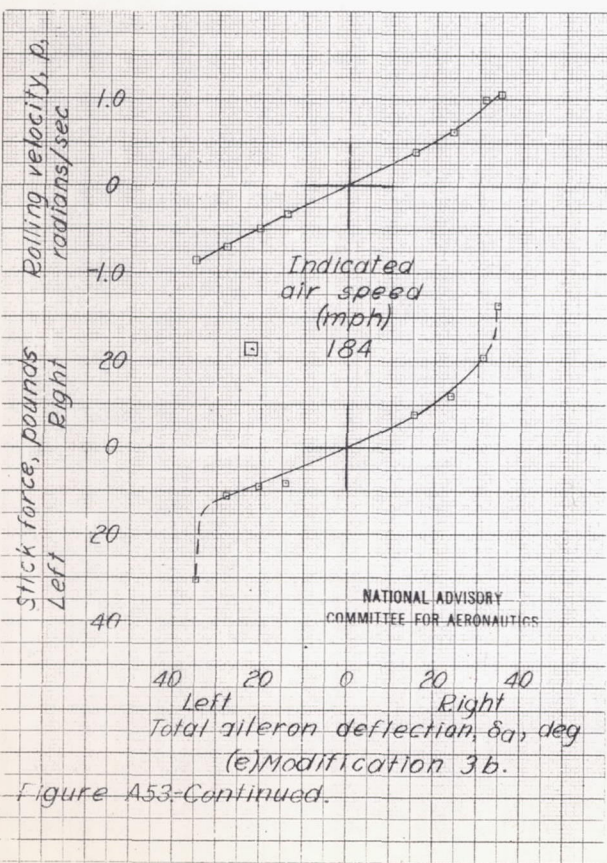 Rolling velocity, p,
radians/sec
1.0
0
-1.0
Indicated
air speed
(mph)
184
Stick force, pounds
Left Right
20
0
20
40
NATIONAL ADVISORY
COMMITTEE FOR AERONAUTICS
40 20 0 20 40
Left Right
Total aileron deflection, δa, deg
(e) Modification 3b.
Figure A53.-Continued.